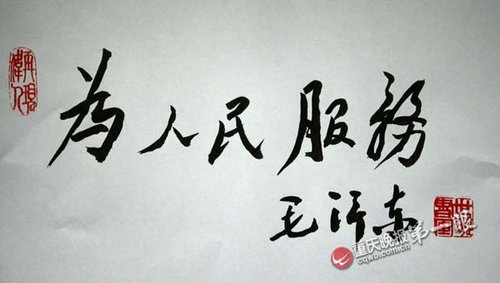 為人民服務
毛泽东
重庆晚报
cqwb.com.cn